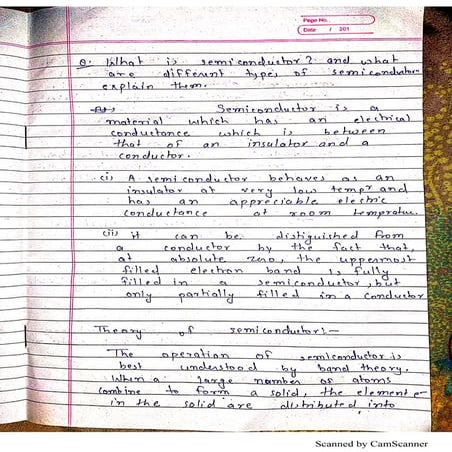 Page No.
Date / 201
Q. What is semiconductor? and what
are different types of semiconductor
explain them.
Ans Semiconductor is a
material which has an electrical
conductance which is between
that of an insulator and a
conductor.
(i) A semiconductor behaves as an
insulator at very low tempr and
has an appreciable electric
conductance at room tempratur.
(ii) It can be distiguished from
a conductor by the fact that,
at absolute zero, the uppermost
filled electron band is fully
filled in a semiconductor, but
only partially filled in a conductor
Theory of semiconductor:-
The operation of semiconductor is
best understood by band theory.
When a large number of atoms
combine to form a solid, the element e-
in the solid are distributed into
Scanned by CamScanner